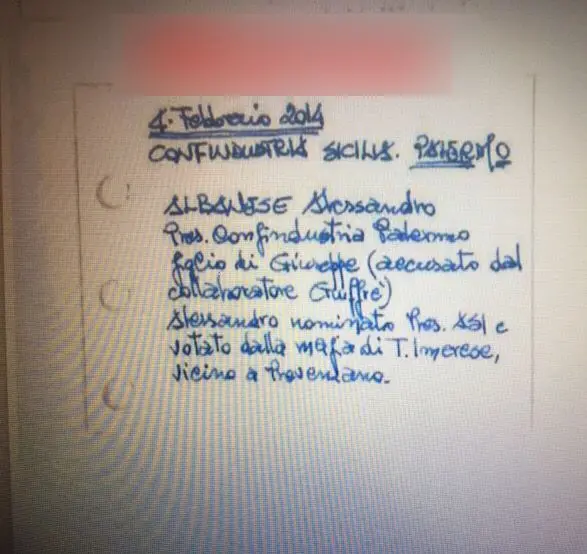 4. Febbraio 2014
CONFINDUSTRIA SICILIA. PALERMO
ALBANESE Alessandro
Pres. Confindustria Palermo
figlio di Giuseppe (accusato dal
collaboratore Giuffrè)
Alessandro nominato Pres. ASI e
votato dalla mafia di T. Imerese,
vicino a Provenzano.